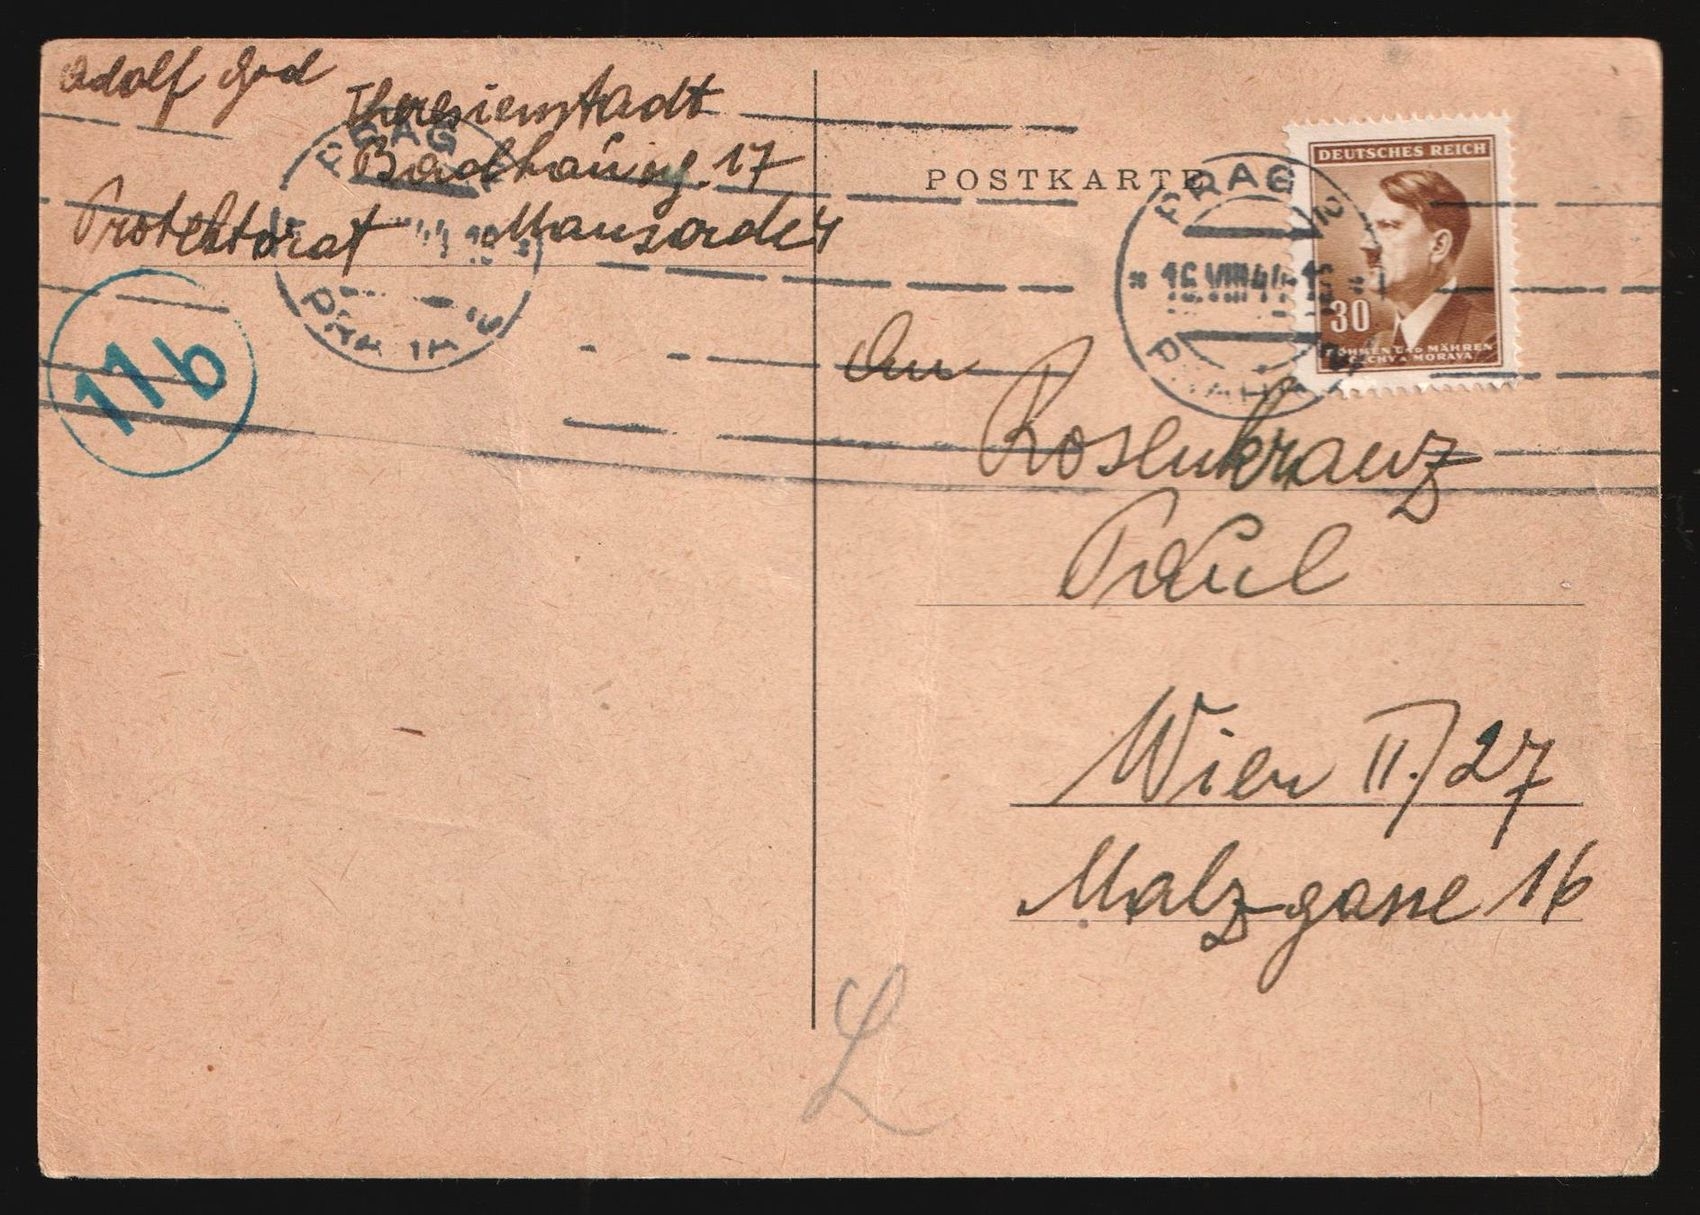 Adolf
Theresienstadt
Badhausg. 17
Protektorat Mansarde 4
PRAG
PRAHA
11b
POSTKARTE
PRAG 2
* 16. VIII 44
PRAHA
DEUTSCHES REICH
30
BÖHMEN UND MÄHREN
ČECHY A MORAVA
An
Rosenkranz
Paul
Wien II./27
Malzgasse 16
L